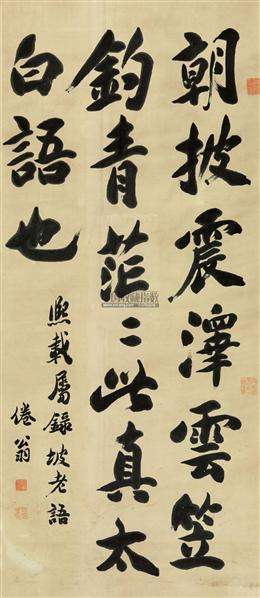 朝披震澤雲笠
釣青茫二此真太
白語也
熙載屬錄坡老語
倦翁